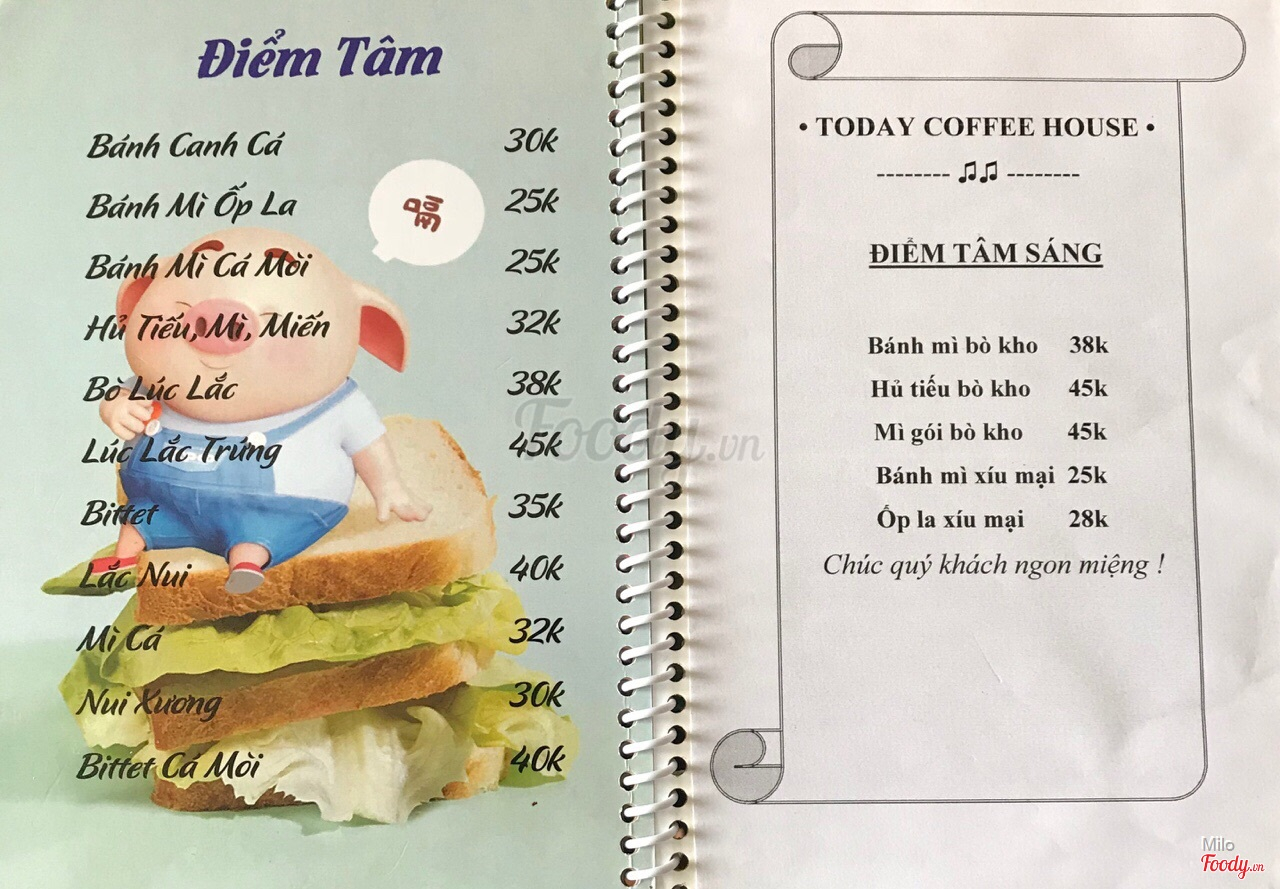 Điểm Tâm
Bánh Canh Cá 30k
Bánh Mì Ốp La 25k
Bánh Mì Cá Mòi 25k
Hủ Tiếu, Mì, Miến 32k
Bò Lúc Lắc 38k
Lúc Lắc Trứng 45k
Bittet 35k
Lắc Nui 40k
Mì Cá 32k
Nui Xương 30k
Bittet Cá Mòi 40k
• TODAY COFFEE HOUSE •
-------- ♫♫ --------
ĐIỂM TÂM SÁNG
Bánh mì bò kho 38k
Hủ tiếu bò kho 45k
Mì gói bò kho 45k
Bánh mì xíu mại 25k
Ốp la xíu mại 28k
Chúc quý khách ngon miệng !
Foody.vn
Milo
Foody.vn